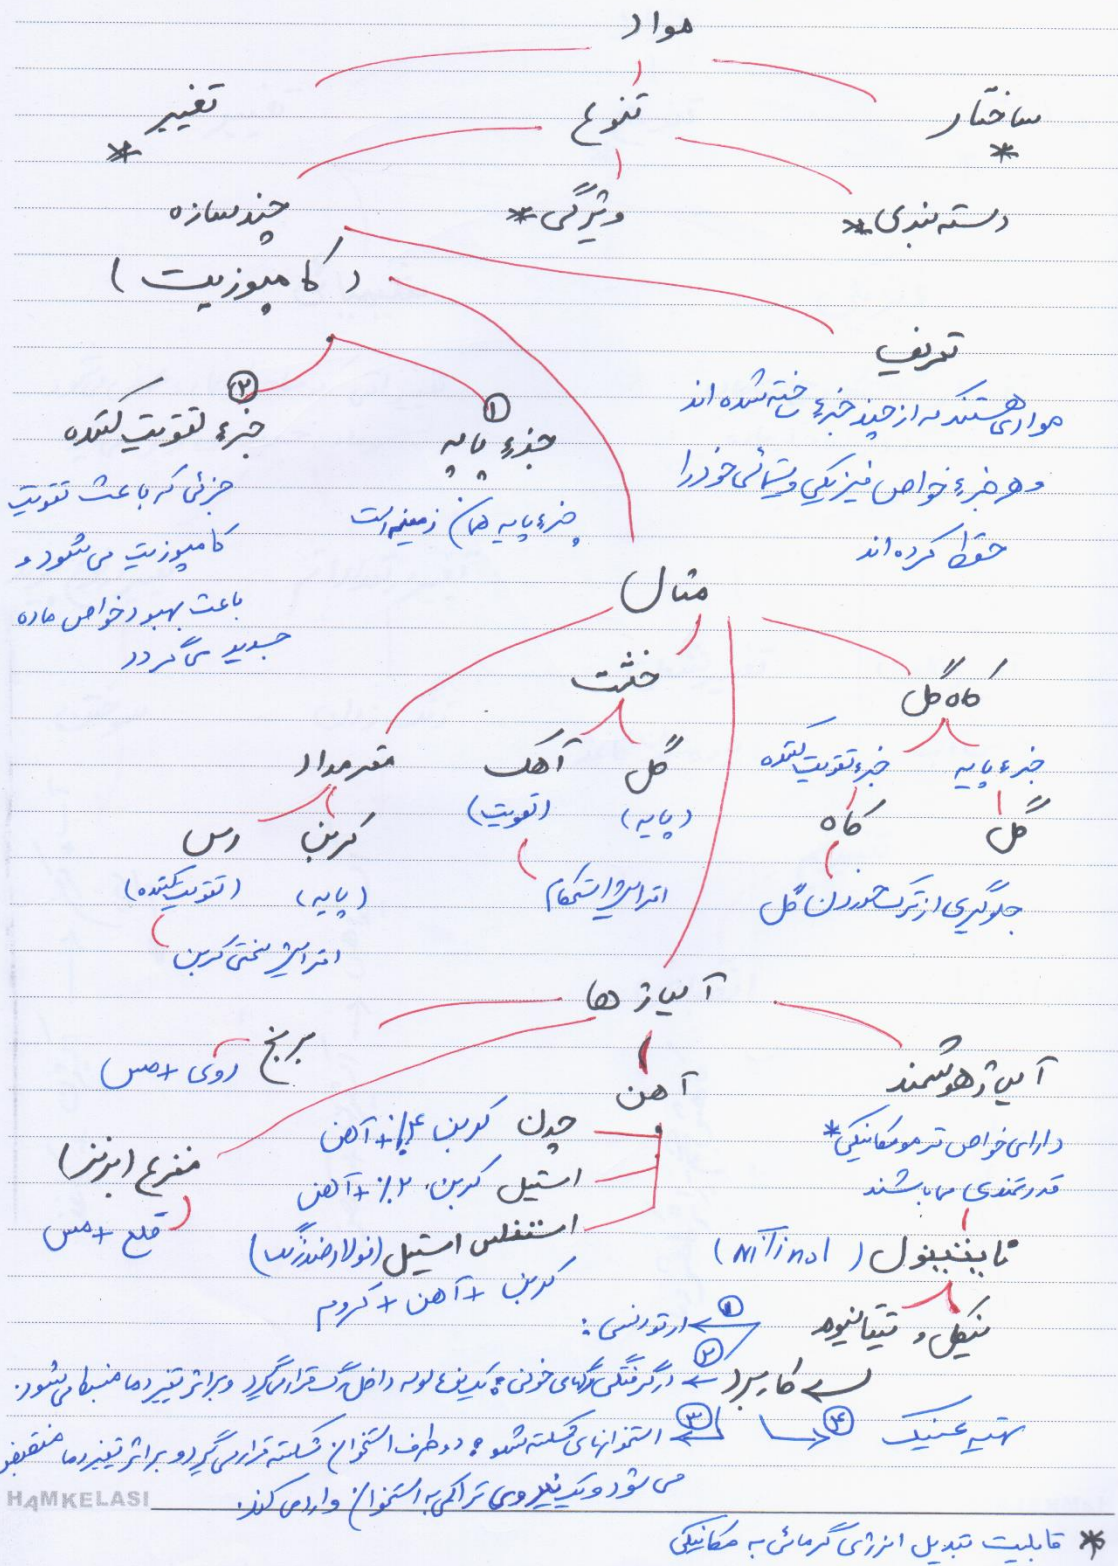 مواد
ساختار * تنوع تغییر *
دسته بندی * ویژگی * چندسازه
(کامپوزیت)
تعریف
موادی هستند که از چند جزء ساخته شده اند
و هر جزء خواص فیزیکی و شیمیائی خود را
حفظ کرده اند
① جزء پایه
جزء پایه همان زمینه است
② جزء تقویت کننده
جزئی که باعث تقویت
کامپوزیت می شود و
باعث بهبود خواص ماده
جدید می گردد
مثال
کاه گل
جزء پایه جزء تقویت کننده
گل کاه
جلوگیری از ترک خوردن گل
خشت
گل آهک
(پایه) (تقویت)
افزایش استحکام
مغز مداد
کربن رس
(پایه) (تقویت کننده)
افزایش سختی کربن
آلیاژ ها
آلیاژ هوشمند
دارای خواص ترمومکانیکی *
قدرتمندی می باشند
نایتینول (NiTinol)
نیکل و تیتانیوم
آهن
چدن کربن ۴٪ + آهن
استیل کربن ۲٪ + آهن
استنلس استیل (فولاد ضد زنگ)
کربن + آهن + کروم
برنج روی + مس
مفرغ (برنز)
قلع + مس
کاربرد
① ارتودنسی :
② در گرفتگی رگهای خونی : یک لوله داخل رگ قرار می گیرد و بر اثر تغییر دما منبسط می شود.
③ استخوانهای شکسته شده : دو طرف استخوان شکسته قرار می گیرد و بر اثر تغییر دما منقبض
می شود و یک نیروی تراکمی به استخوان وارد می کند.
④ تهیه عینک
HAMKELASI
* قابلیت تبدیل انرژی گرمائی به مکانیکی